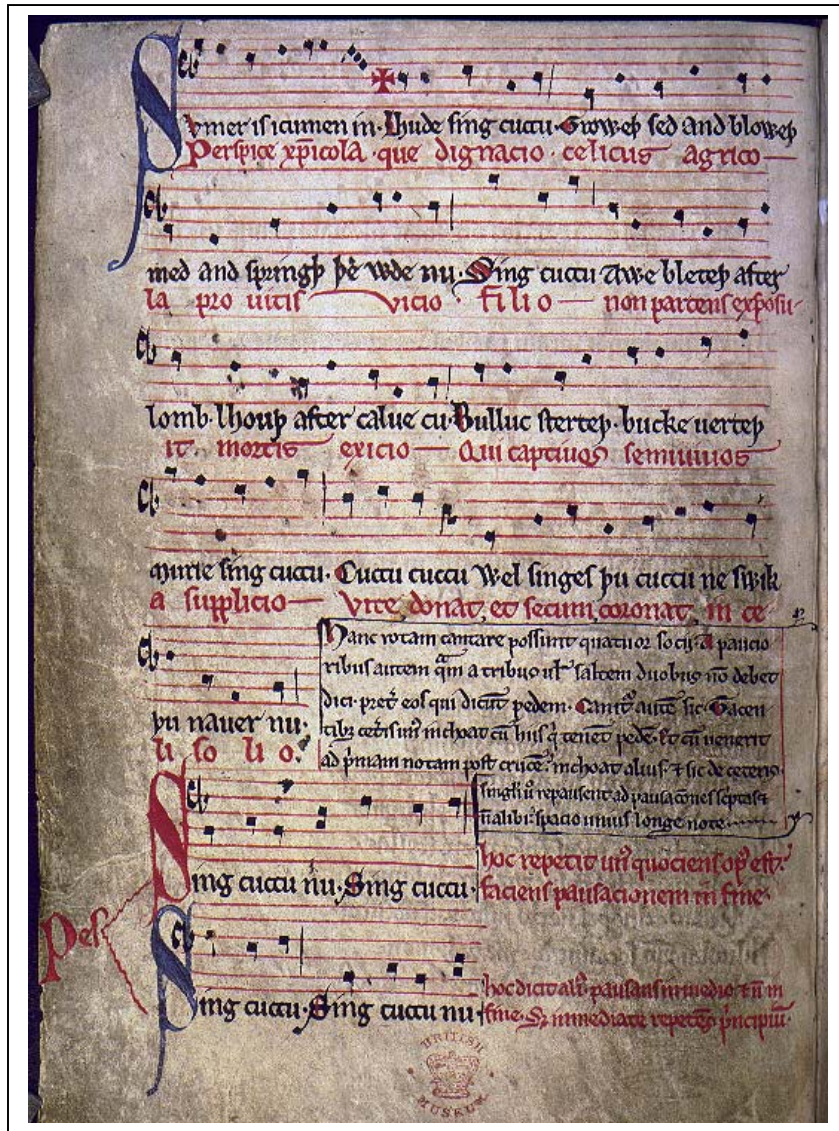 Sumer is icumen in·Lhude sing cuccu·Groweþ sed and bloweþ
Perspice xp̄icola·que dignacio·celicus agrico
med and springþ þe wde nu·Sing cuccu Awe bleteþ after
la pro uitis vicio·filio non parcens exposu
lomb·lhouþ after calue cu·Bulluc sterteþ·bucke uerteþ
it mortis exicio Qui captiuos semiuiuos
murie sing cuccu·Cuccu cuccu Wel singes þu cuccu ne swik
a supplicio Vite donat et secum coronat in ce
þu nauer nu·
li solio·
Hanc rotam cantare possunt quatuor socii·A paucio
ribus autem q̄m a tribus ul' saltem duobus nō debet
dici·pret̄ eos qui dicūt pedem·Canit' autē sic·Tacen
tib; cet̄is un' inchoat cū hiis q' tenēt pedē·Et cū uenerit
ad p'mam notam post crucē·inchoat alius·⁊ sic de ceteris
singli u̓ repausent ad pausacōnes sc̓ptas ⁊
ñ alibi·spacio unius longe note
Sing cuccu nu·Sing cuccu·
hoc repetit un' quociens op' est·
faciens pausacionem in fine·
Pes
Sing cuccu·Sing cuccu nu
hoc dicit ali' pausans in medio ⁊ ñ in
fine·Sȝ immediate repetēs p'ncipiū·
BRITISH
MUSEUM